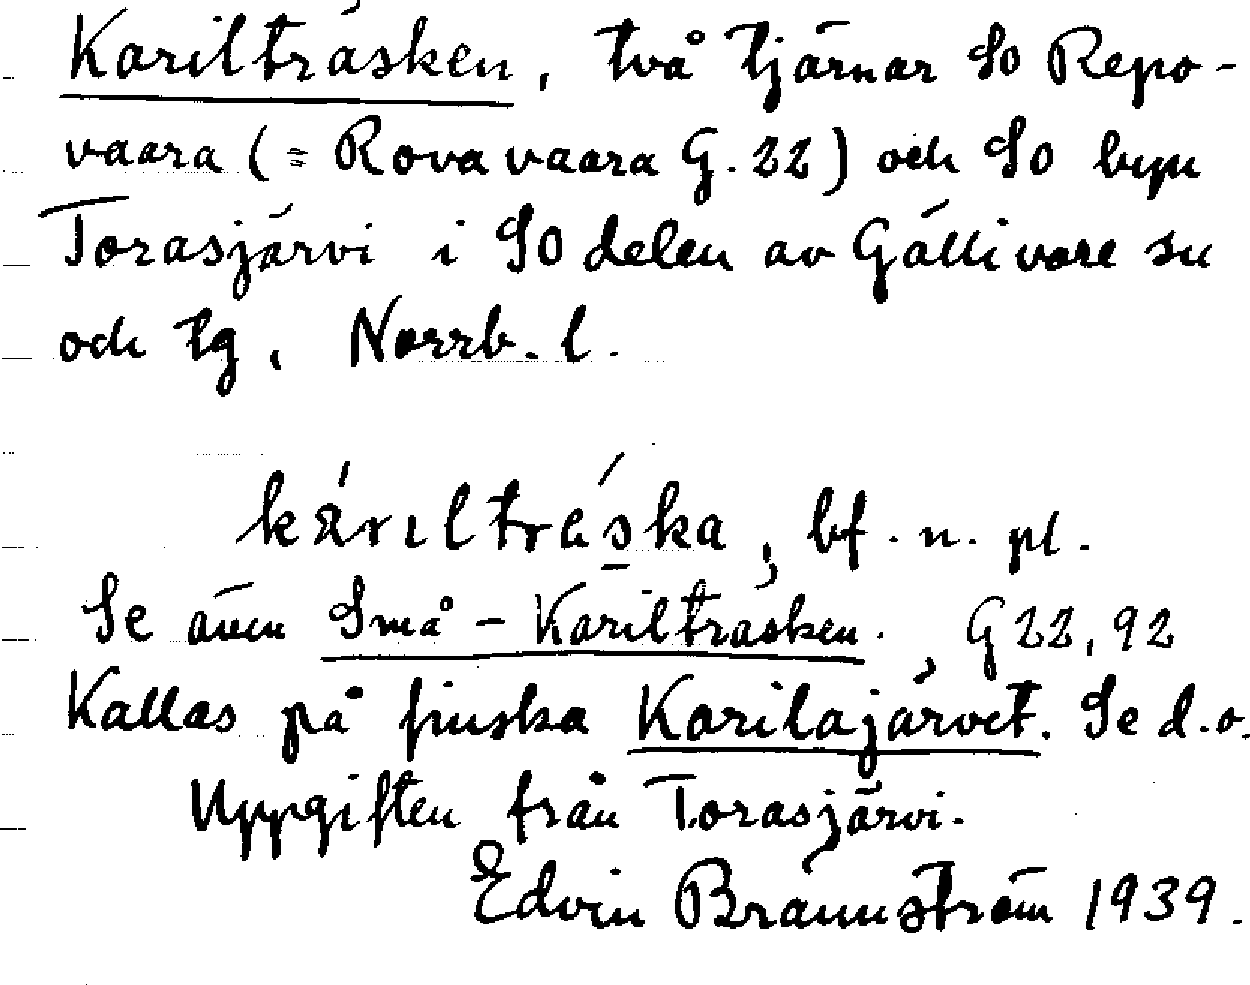 Karilträsken, två tjärnar SO Repo-
vaara (= Rovavaara G. 22) och SO byn
Torasjärvi i SO delen av Gällivare sn
och tg, Norrb. l.
káriltrǽska, bf. n. pl.
Se även Små-Karilträsken. G 22, 92
Kallas på finska Karilajärvet. Se d.o.
Uppgiften från Torasjärvi.
Edvin Brännström 1939.